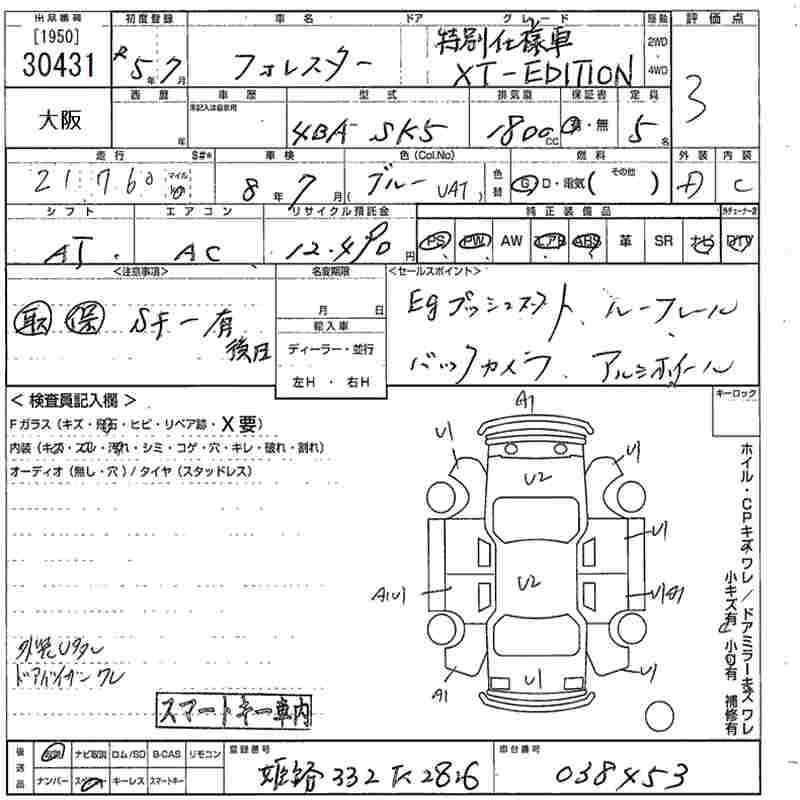 出品番号 初度登録 車名 ドア グレード 駆動 評価点
[1950]
30431 R 5年 7月 フォレスター 特別仕様車 2WD 3
XT-EDITION 4WD
大阪 西暦 年 車歴 未記入は自家用 型式 排気量 保証書 定員
4BA SK5 1800cc 有・無 5名
走行 S#* 車検 色(Col.No) 燃料 その他 外装 内装
21760 マイル km 8年 7月 (ブルー UA7) 色替 G D・電気( ) D C
シフト エアコン リサイクル預託金 純正装備品
AT AC 12.490円 PS PW AW エアB ABS 革 SR ナビ DTV
<注意事項> 名変期限 <セールスポイント>
取 保 Sキー有 月 日 Egプッシュスタート、ルーフレール
後日 輸入車 バックカメラ、アルミホイール
ディーラー・並行
左H・右H
<検査員記入欄> キーロック
Fガラス(キズ・飛石・ヒビ・リペア跡・X要)
内装(キズ・スレ・汚れ・シミ・コゲ・穴・キレ・破れ・割れ)
オーディオ(無し・穴)/タイヤ(スタッドレス)
A1
U1 U1
U2
U1
U2
A1U1 U1A1
A1 U1 U1
ホイル・CPキズ・ワレ/ドアミラーキズ ワレ
小キズ有 小凹有 補修有
ドアバイザー ワレ
スマートキー車内
後送品 取説 ナビ取説 ロム/SD B-CAS リモコン 登録番号 車台番号
ナンバー スペアキー キーレス スマートキー 姫路 332 た 2826 038453